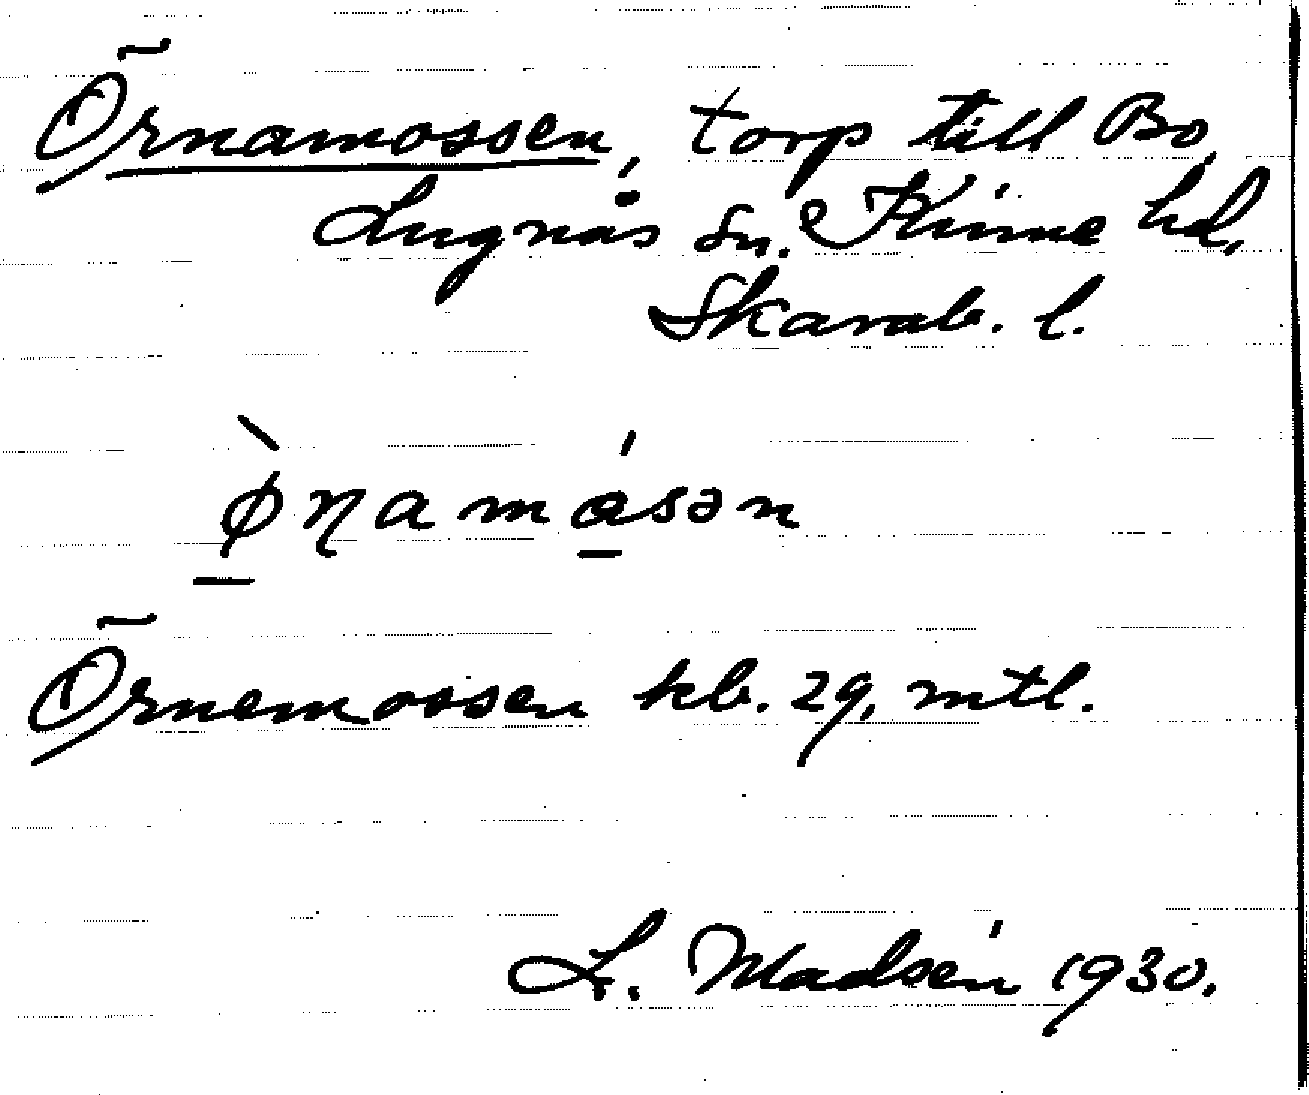 Örnamossen, torp till Bo,
Lugnås sn. Kinne hd,
Skarab. l.
ø̀ɳamåsən
Örnemossen kb. 29, mtl.
L. Madsén 1930.